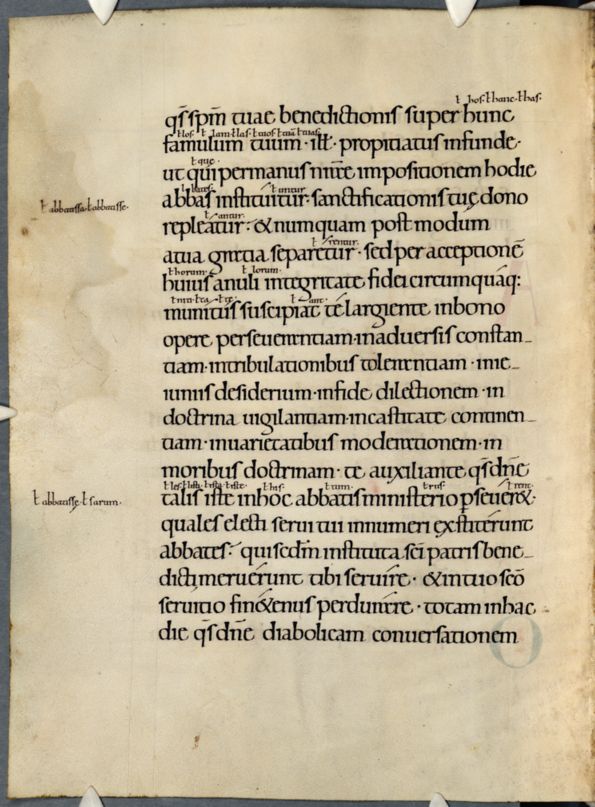 ł hos· ł hanc· ł has·
q̄s sp̄m tuae benedictionis super hunc
ł los· ł lam· ł las· ł tuos· ł tuā· ł tuas·
famulum tuum· ill̄· propitiatus infunde·
ł que·
ut qui per manus nr̄e impositionem hodie
ł untur·
abbas instituitur· sanctificationis tuę dono
ł abbatissa· ł abbatisse·
ł antur·
repleatur· & numquam postmodum
ł rentur·
a tua gratia separetur· sed per acceptionē
ł horum· ł lorum·
huius anuli integritate fidei circumquaq:
ł ant·
munitus suscipiat te largiente in bono
opere perseuerantiam· in aduersis constan-
tiam· in tribulationibus tolerantiam· in ie-
iuniis desiderium· in fide dilectionem· in
doctrina uigilantiam· in castitate continen-
tiam· in uarietatibus moderationem· in
moribus doctrinam· te auxiliante q̄s dn̄e
ł les· ł isti· ł ista· ł iste· ł his· ł tum· ł rus· ł rent·
talis iste in hoc abbatis ministerio pseuer&·
ł abbatisse· ł sarum·
quales electi serui tui innumeri exstiterunt
abbates· qui sedm̄ instituta sc̄i patris bene-
dicti meruerunt tibi seruire· & in tuo sc̄o
seruitio fin&enus perdurare· totam in hac
die q̄s dn̄e diabolicam conuersationem